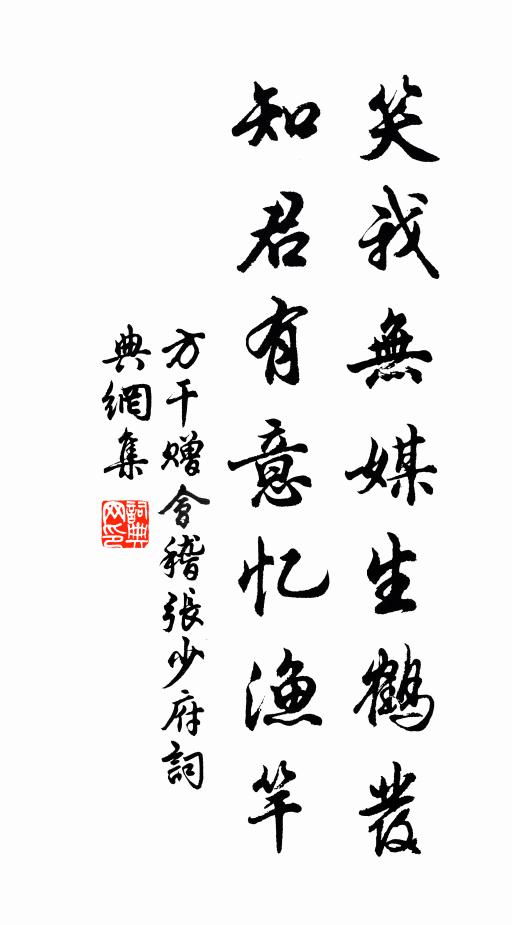 笑我無媒生鹤發
知君有意忆渔竿
方干赠會稽張少府詞
典網集
詞典网印